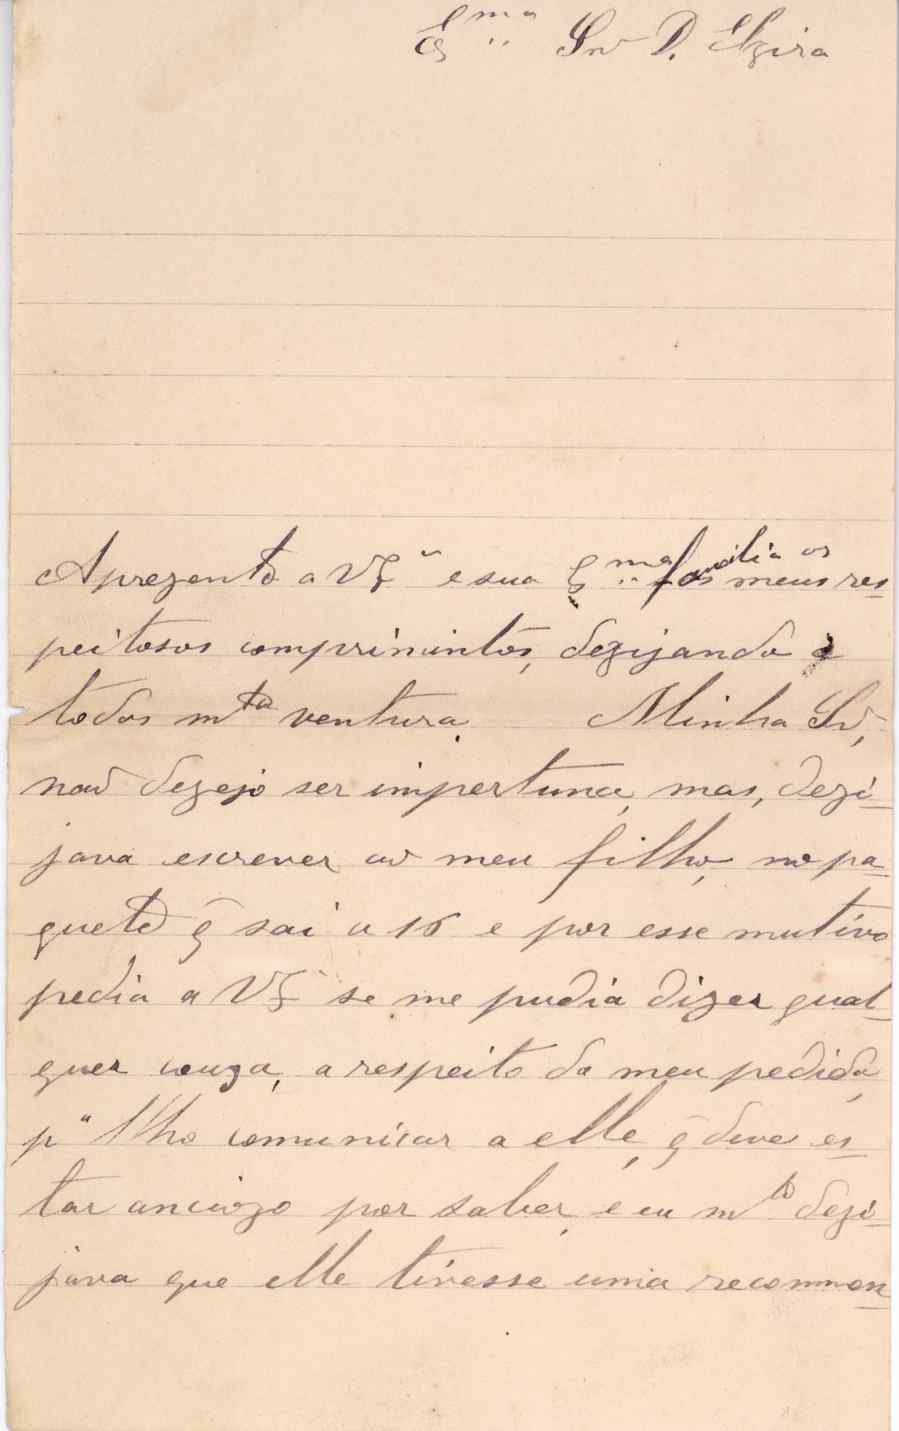 Ex.ma Snr D. Elzira
Aprezento a VEx.a e sua Ex.ma familia os meus res
peitosos comprimintos, dezijando a
todos mta ventura. Minha Sr,
naõ dezejo ser impertuna, mas, dezi-
java escrever ao meu filho, no pa-
quete q̃ sai a 16 e por esse mutivo
pedia a VEx.a se me pudia dizer qual-
quer couza, a respeito do meu pedido,
pa lho comunicar a elle, q̃ deve es-
tar anciozo por saber, e eu mto dezi-
java que elle tivesse uma recommen